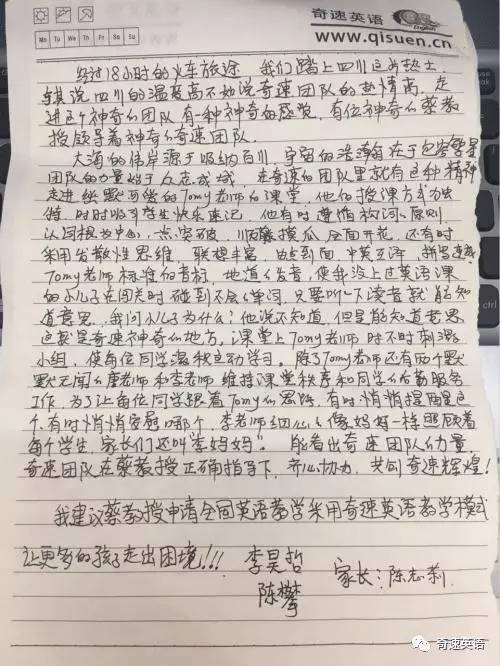 奇速英语
English
www.qisuen.cn
Mo Tu We Th Fr Sa Su
经过18小时的火车旅途 我们踏上四川这方热土
与其说四川的温度高不如说奇速团队的热情高,走
进这个神奇的团队有一种神奇的感觉,有位神奇的蔡教
授领导着神奇的奇速团队.
大海的伟岸源于吸纳百川,宇宙的浩瀚在于包容繁星
团队的力量始于众志成城,在奇速的团队里就有这种精神
走进幽默可亲的Tomy老师的课堂,他的授课方式独
特,时时能引学生快乐速记,他有时遵循构词的原则
以词根为中心,一点突破,顺藤摸瓜全面开花,还有时
采用发散性思维,联想丰富,由点到面,中英互译,拼写速成
Tomy老师标准的音标,地道的发音,使我没上过英语课
的小儿子在闯关时碰到不会的单词,只要听一下读音就能知
道意思,我问小儿子为什么?他说不知道,但是能知道意思
这就是奇速神奇的地方,课堂上Tomy老师时不时刺激
小组,使每位同学积极主动学习。除了Tomy老师还有两个默
默无闻的唐老师和李老师维持课堂秩序和同学们的后勤服务
工作,为了让每位同学跟着Tomy的思路,有时悄悄提醒这
个,有时悄悄安慰哪个,李老师细心的像妈妈一样照顾着
每个学生,家长们还叫"李妈妈"。能看出奇速团队的力量,
奇速团队在蔡教授正确指导下,齐心协力,共创奇速辉煌!
我建议蔡教授申请全国英语教学采用奇速英语教学模式
让更多的孩子走出困境!!! 李昊哲
陈攀 家长:陈志莉.
奇速英语